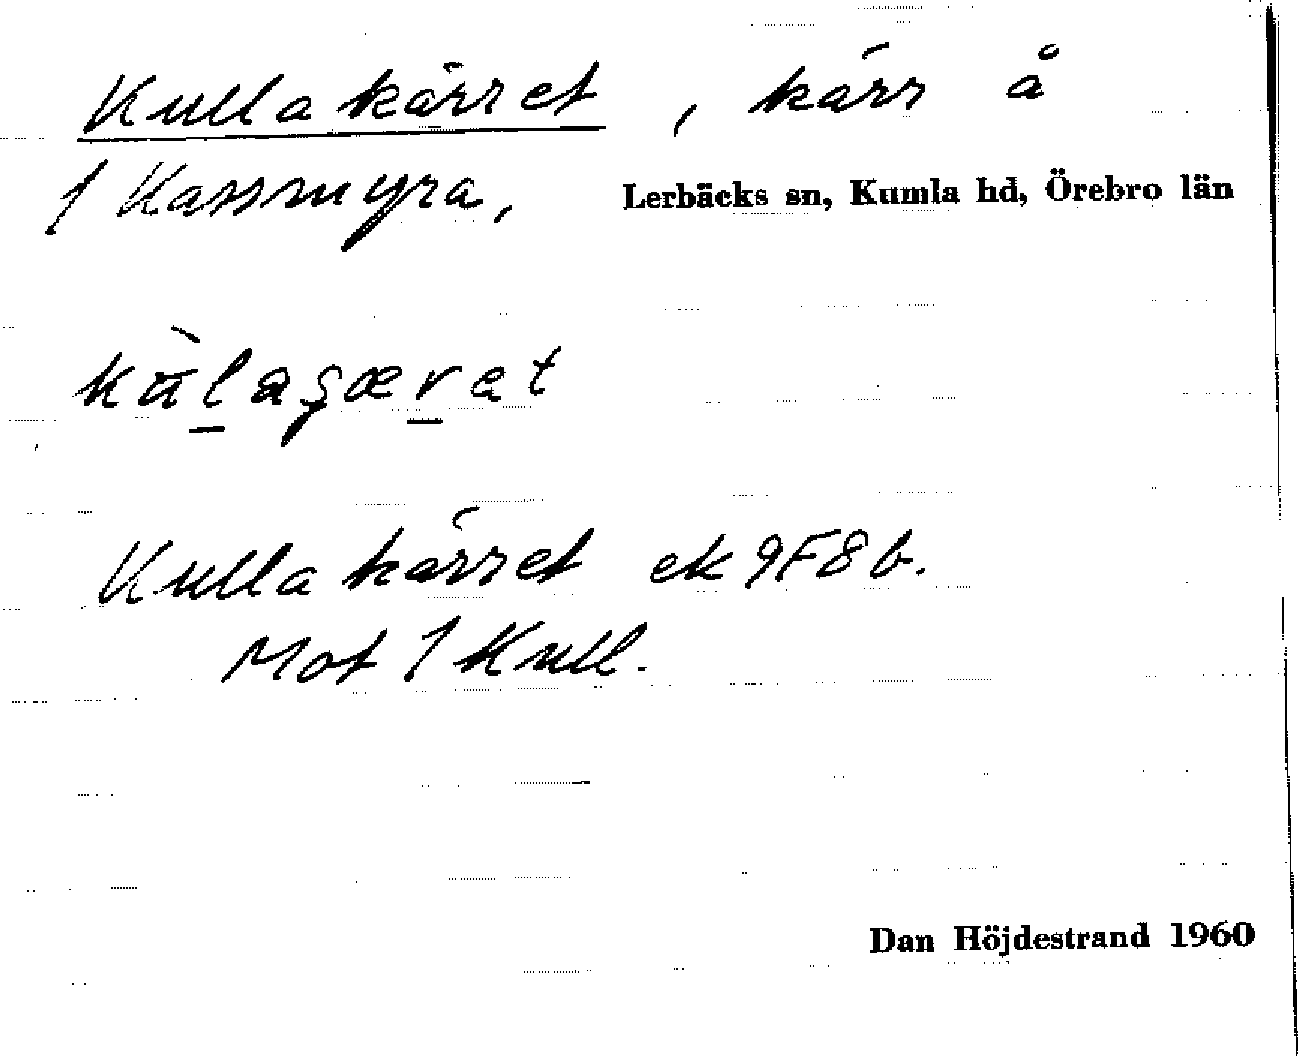 Kullakärret, kärr å
1 Kassmyra, Lerbäcks sn, Kumla hd, Örebro län
kùlaşærat
Kullakärret ek 9F8b.
Mot 1 Kull.
Dan Höjdestrand 1960